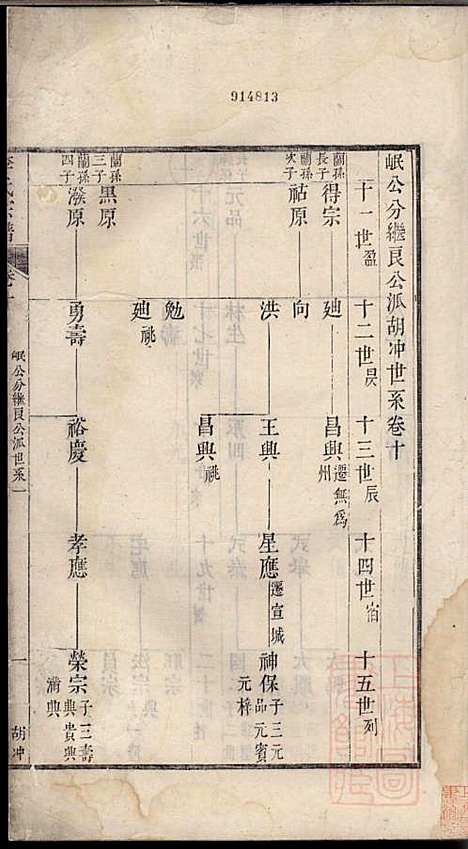 914813
岷公分繼良公派胡冲世系卷十
十一世盈
十二世昃
十三世辰
十四世宿
十五世列
蘭孫長子
得宗
廸
昌興遷無為州
蘭孫次子
祐原
向
洪
王興
星應遷宣城
神保子三元品元賓元梓
勉
昌興祧
廸祧
蘭孫三子
黒原
蘭孫四子
潑原
勇壽
裕慶
孝應
榮宗子三壽興貴興清興
岷公分繼良公派世系
一
胡冲